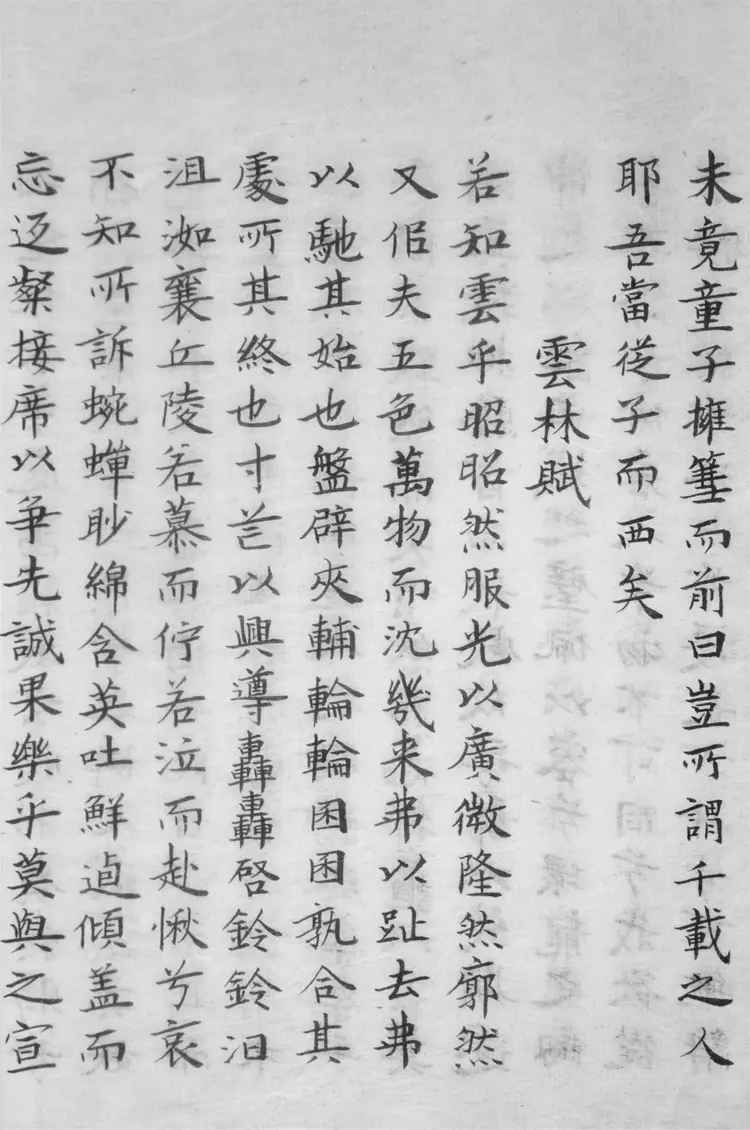 未竟童子擁篲而前曰豈所謂千載之人
耶吾當從子而西矣
雲林賦
若知雲乎昭昭然服光以廣徵隆然廓然
又侣夫五色萬物而沈幾来弗以趾去弗
以馳其始也盤辟夾輔輪輪囷囷孰合其
處所其終也寸芒以興導轟轟啓鈴鈴汩
沮洳襄丘陵若慕而佇若泣而赴愀兮哀
不知所訴蜿蟬眇綿含英吐鮮逌傾盖而
忘返粲接席以争先誠果樂乎莫與之宣